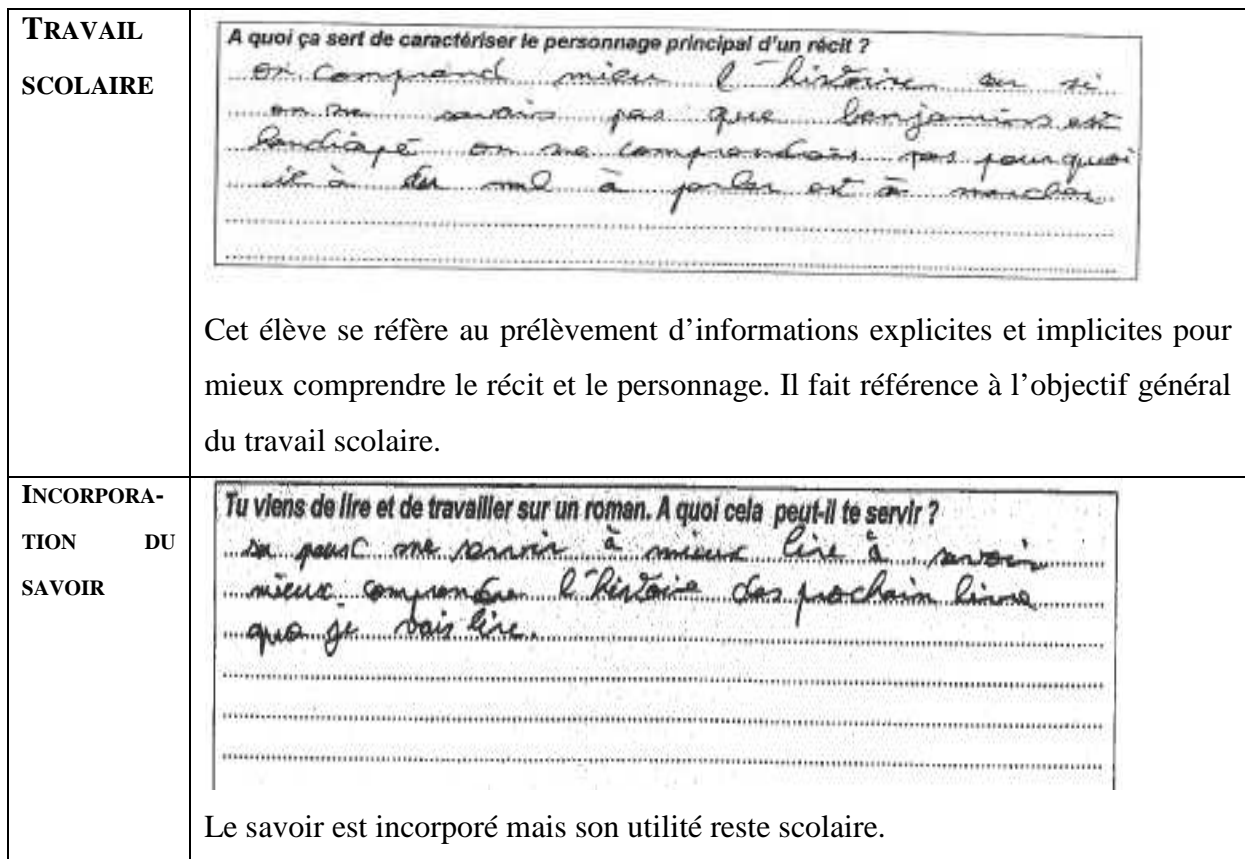 TRAVAIL
SCOLAIRE
A quoi ça sert de caractériser le personnage principal d'un récit ?
on comprend mieu l'histoire car si
on ne savais pas que benjamins est
handiapé on ne comprendais pas pourquoi
il à du mal à parler est à marcher
Cet élève se réfère au prélèvement d'informations explicites et implicites pour
mieux comprendre le récit et le personnage. Il fait référence à l'objectif général
du travail scolaire.
INCORPORA-
TION DU
SAVOIR
Tu viens de lire et de travailler sur un roman. A quoi cela peut-il te servir ?
sa peut me servir à mieux lire à savoir
mieux comprendre l'histoire des prochain livre
que je vais lire.
Le savoir est incorporé mais son utilité reste scolaire.